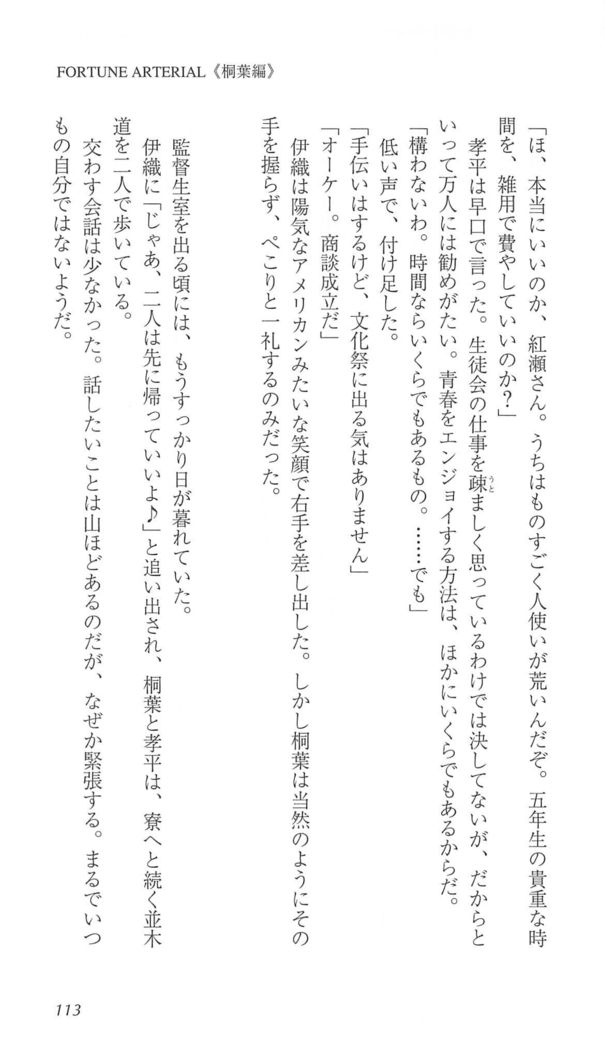 FORTUNE ARTERIAL《桐葉編》
「ほ、本当にいいのか、紅瀬さん。うちはものすごく人使いが荒いんだぞ。五年生の貴重な時
間を、雑用で費やしていいのか？」
　孝平は早口で言った。生徒会の仕事を疎ましく思っているわけでは決してないが、だからと
うと
いって万人には勧めがたい。青春をエンジョイする方法は、ほかにいくらでもあるからだ。
「構わないわ。時間ならいくらでもあるもの。……でも」
　低い声で、付け足した。
「手伝いはするけど、文化祭に出る気はありません」
「オーケー。商談成立だ」
　伊織は陽気なアメリカンみたいな笑顔で右手を差し出した。しかし桐葉は当然のようにその
手を握らず、ぺこりと一礼するのみだった。
　監督生室を出る頃には、もうすっかり日が暮れていた。
　伊織に「じゃあ、二人は先に帰っていいよ♪」と追い出され、桐葉と孝平は、寮へと続く並木
道を二人で歩いている。
　交わす会話は少なかった。話したいことは山ほどあるのだが、なぜか緊張する。まるでいつ
もの自分ではないようだ。
113